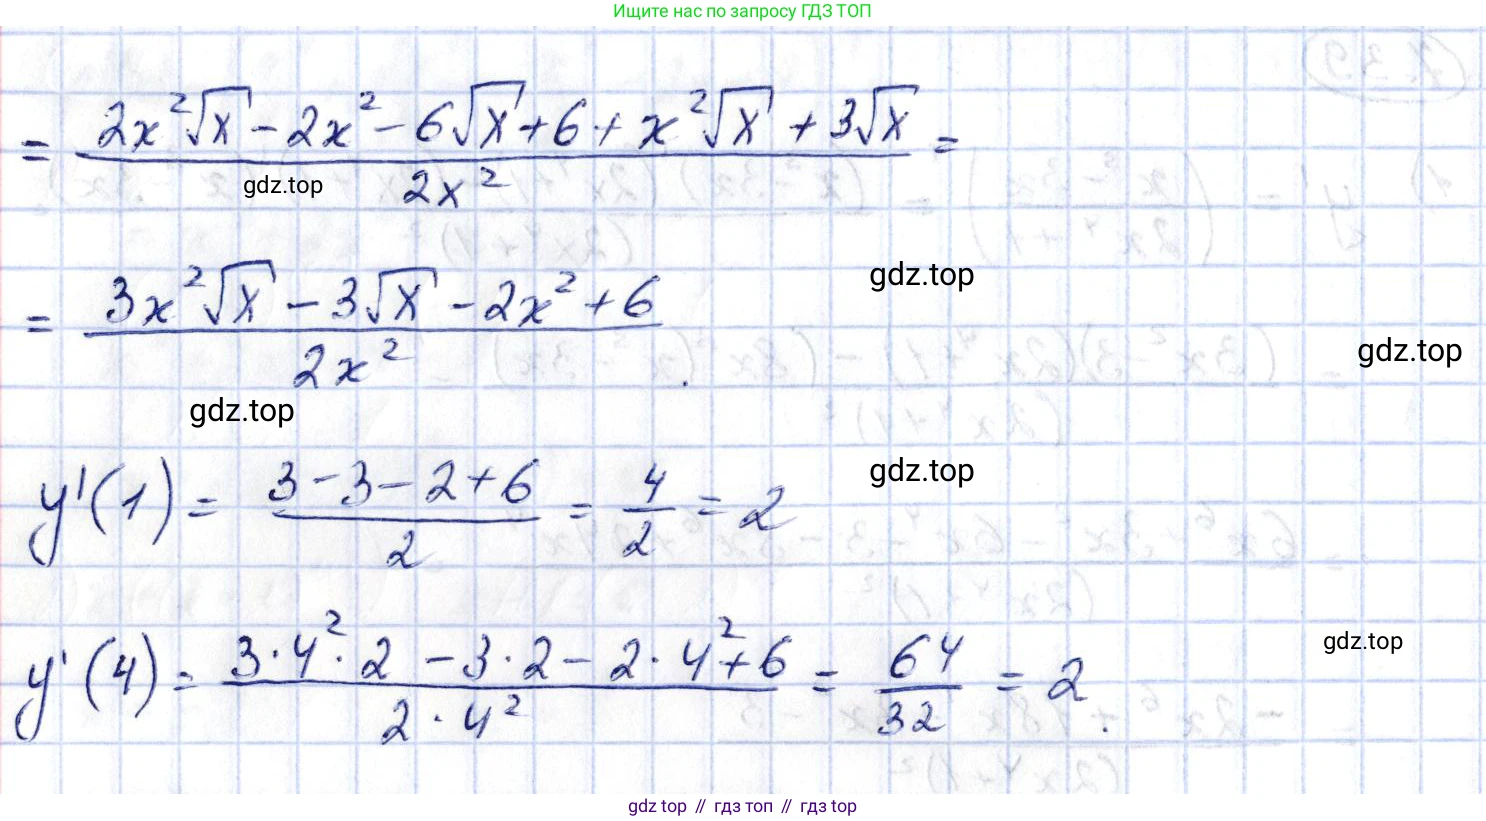 Ищите нас по запросу ГДЗ ТОП
= (2x²√x - 2x² - 6√x + 6 + x²√x + 3√x) / 2x² =
gdz.top
= (3x²√x - 3√x - 2x² + 6) / 2x².
gdz.top
gdz.top
gdz.top
y'(1) = (3 - 3 - 2 + 6) / 2 = 4/2 = 2
gdz.top
y'(4) = (3·4²·2 - 3·2 - 2·4² + 6) / 2·4² = 64/32 = 2.
gdz.top
gdz top // гдз топ // gdz top